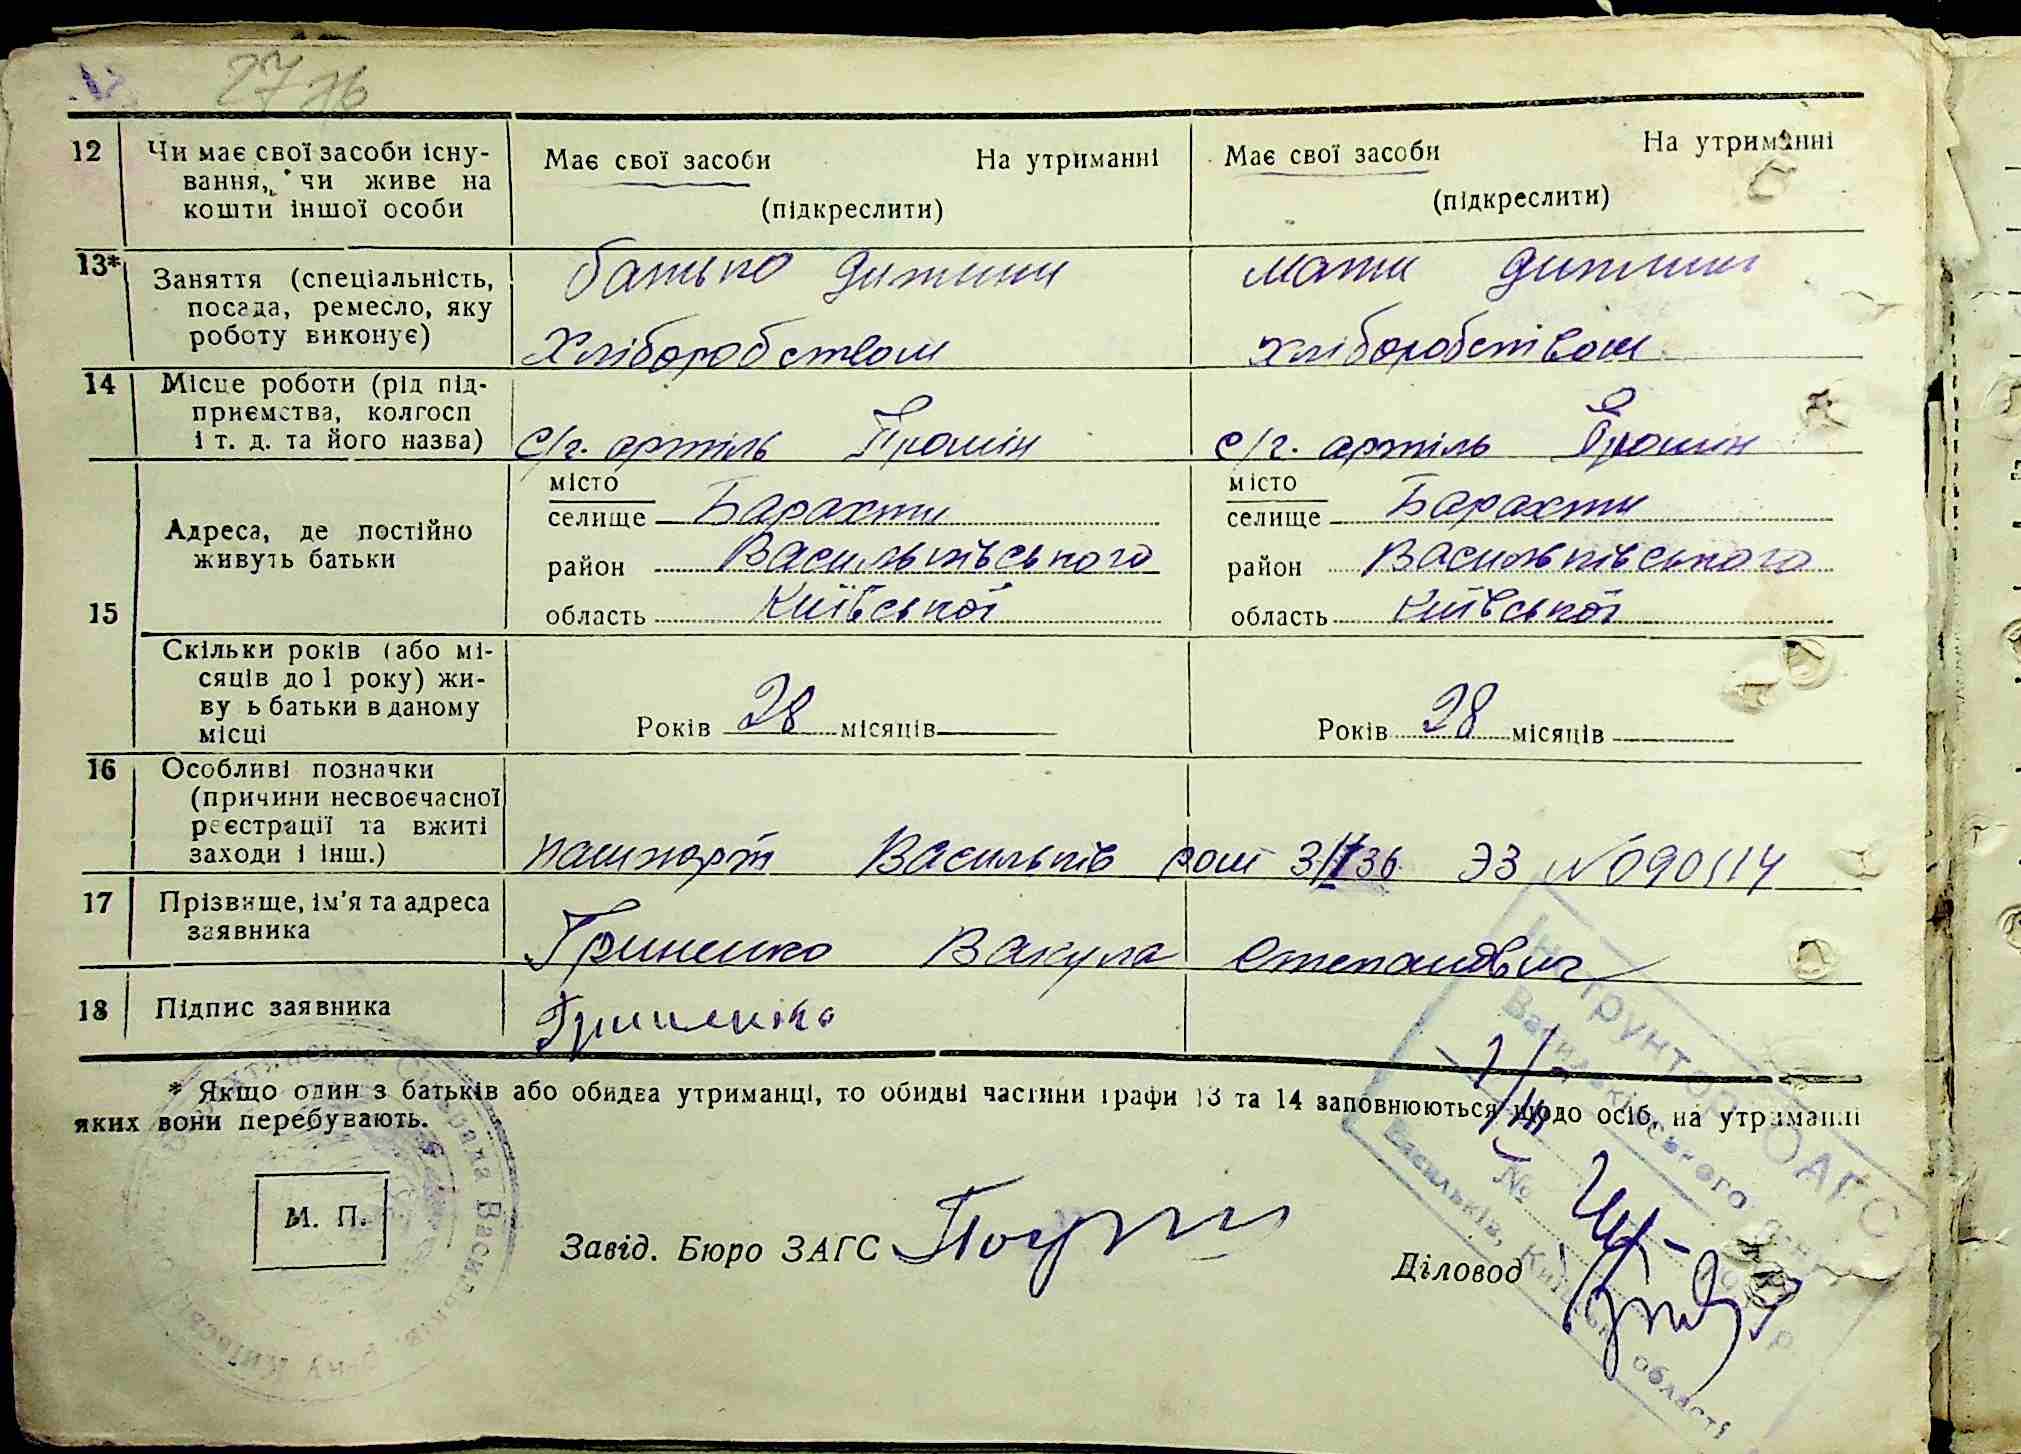 27 зв
12 Чи має свої засоби існу-
вання, чи живе на
кошти іншої особи
Має свої засоби На утриманні
(підкреслити)
Має свої засоби На утриманні
(підкреслити)
13* Заняття (спеціальність,
посада, ремесло, яку
роботу виконує)
батько дитини
Хліборобством
мати дитини
хліборобством
14 Місце роботи (рід під-
приємства, колгосп
і т. д. та його назва)
с/г. артіль Промін
с/г. артіль Промін
15 Адреса, де постійно
живуть батьки
місто
селище Барахти
район Васильківського
область Київської
місто
селище Барахти
район Васильківського
область Київської
Скільки років (або мі-
сяців до 1 року) жи-
ву ь батьки в даному
місці
Років 28 місяців
Років 28 місяців
16 Особливі позначки
(причини несвоєчасної
реєстрації та вжиті
заходи і інш.)
пашпорт Васильків 36 ЭЗ №090114
17 Прізвище, ім'я та адреса
заявника
Гриненко Вакула Степанович
18 Підпис заявника
* Якщо один з батьків або обидва утриманці, то обидві частини графи 13 та 14 заповнюються щодо осіб, на утриманні
яких вони перебувають.
М. П.
Завід. Бюро ЗАГС
Діловод
Інструктор ОАГС
Васильківського
№
Васильків, Київськ області